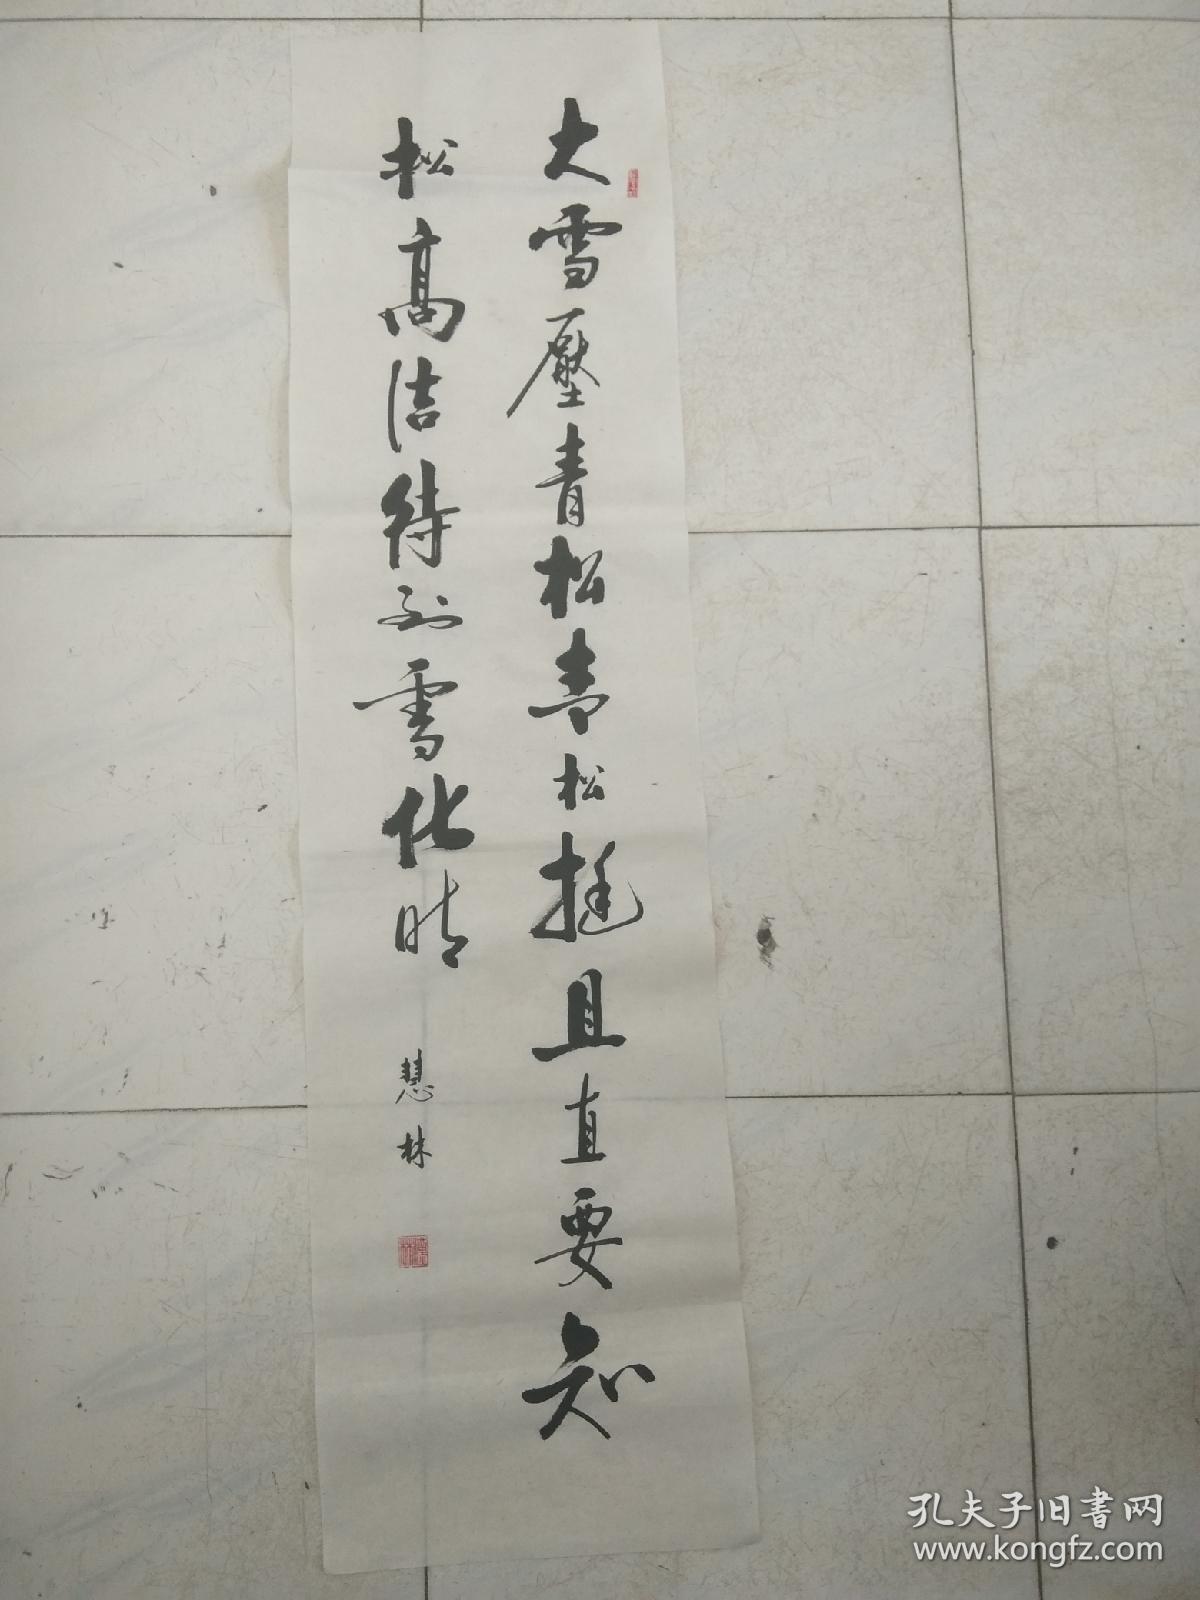 大雪壓青松青松挺且直要知
松高洁待到雪化时
慧林
孔夫子旧書网
www.kongfz.com